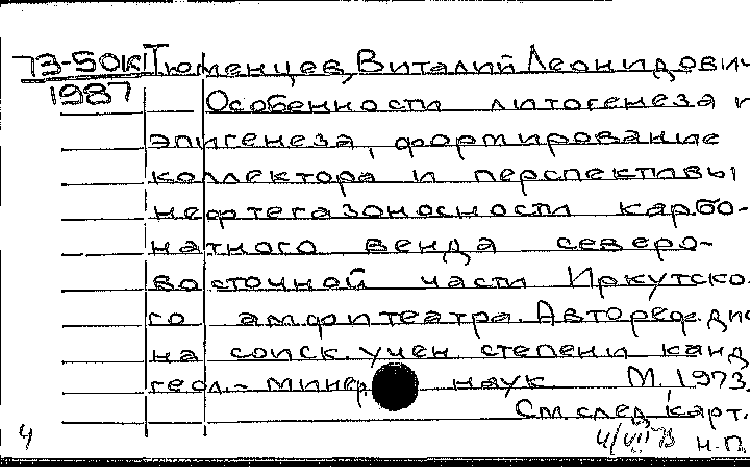 73-50к Тюменцев, Виталий Леонидович
1987 Особенности литогенеза и
эпигенеза, формирование
коллектора и перспективы
нефтегазоносности карбо-
натного венда северо-
восточной части Иркутско-
го амфитеатра. Автореф. дис
на соиск. учен степени канд
геол.-минер. наук М., 1973.
См. след. карт.
4 4/VII 73 н.п.